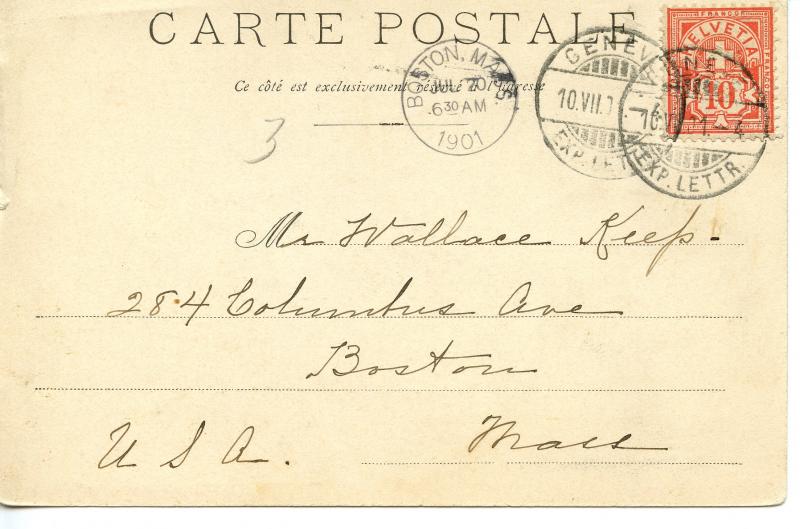 CARTE POSTALE
Ce côté est exclusivement réservé à l'adresse
BOSTON, MASS.
JUL 20
6 30 AM
1901
GENÈV
10.VII.
EXP. LETTR.
10.VII.
EXP. LETTR.
FRANCO
HELVETIA
10
3
Mr Wallace Keep-
284 Columbus Ave
Boston
U S A. Mass